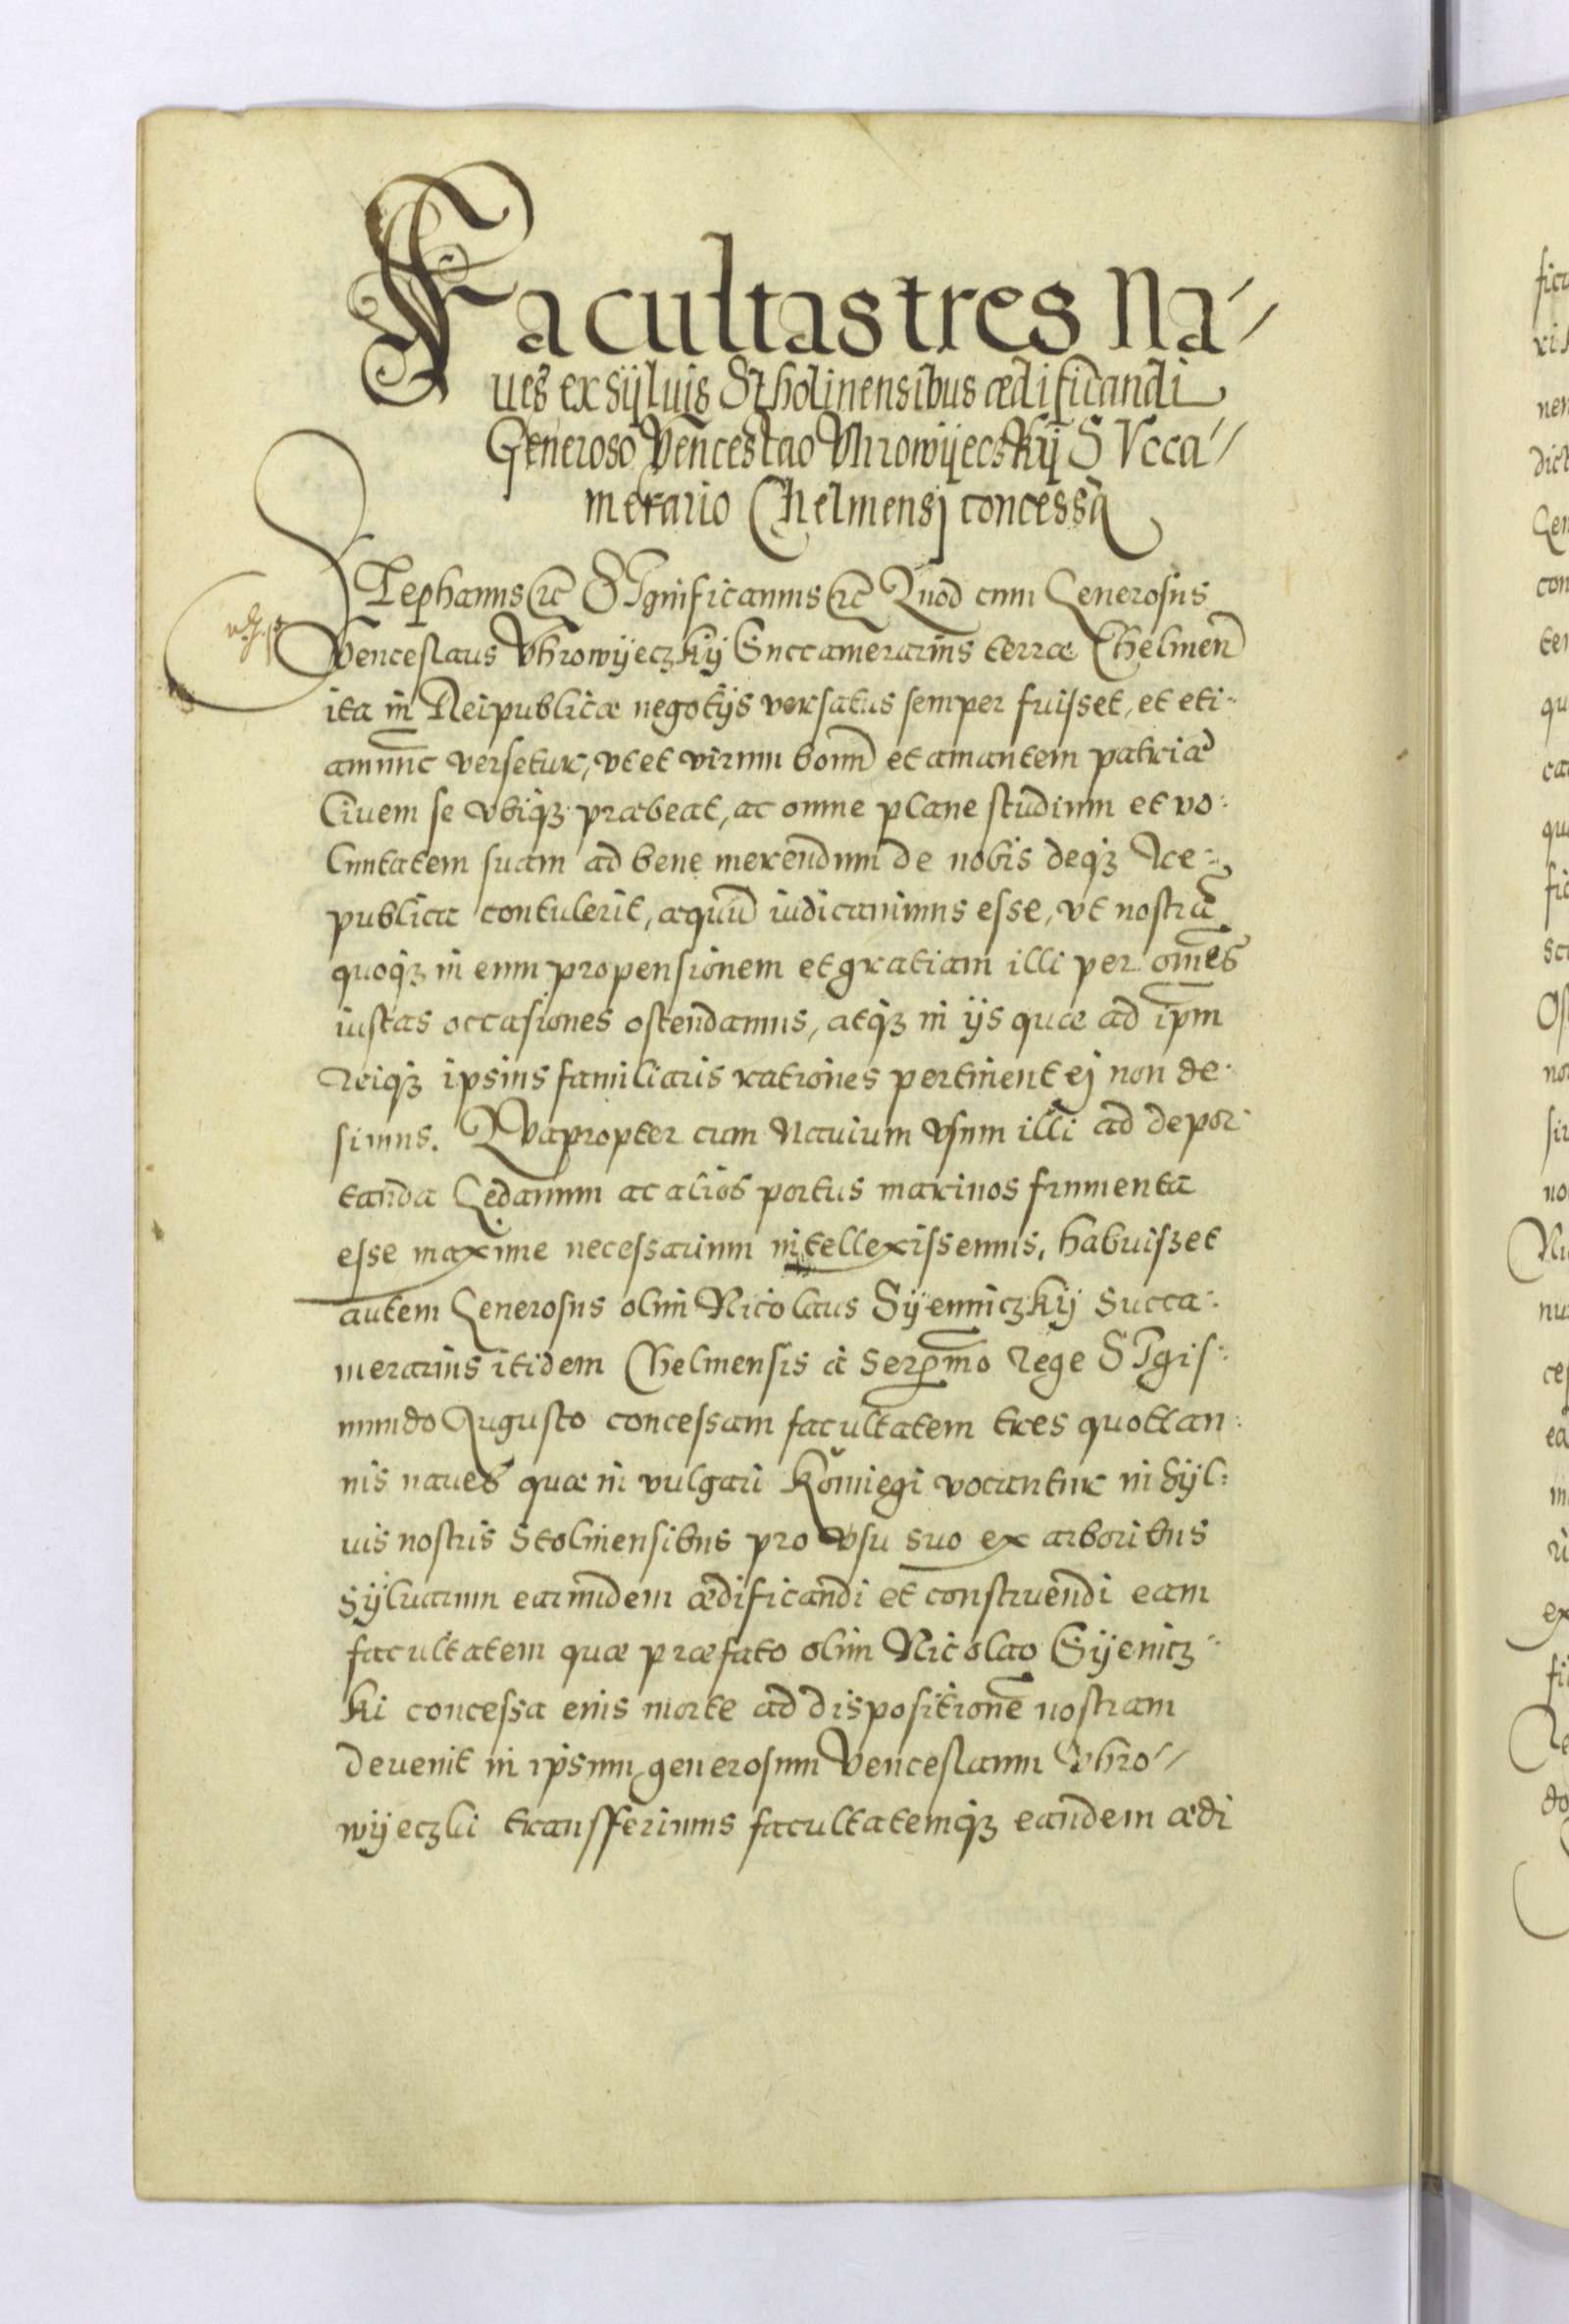 Facultas tres Na-
ues ex sÿluis Stholinensibus ædificandi
Generoso Venceslao Vhrowÿeczkÿ SVcca-
merario Chelmensj concessa
STephanus etc̃ SIgnificamus etc̃ Quod cum Generosus
Venceslaus Vhrowÿeczkÿ Succamerarius terræ Chelmen̄
ita in Reipublicæ negotÿs versatus semper fuisset, et eti-
amnunc versetur, vt et virum bonū et amantem patriæ
Ciuem se vbiqʒ præbeat, ac omne plane studium et vo-
luntatem suam ad bene merendum de nobis deqʒ Re-
publica contulerit, æquū iudicauimus esse, vt nostrā
quoqʒ in eum propensionem et gratiam illi per om̄es
iustas occasiones ostendamus, atqʒ in ÿs quæ ad ip̄m
reiqʒ ipsius familiaris rationes pertinent ej non de-
simus. QVapropter cum Nauium vsum illi ad depor-
tanda Gedanum ac alios portus marinos frumenta
esse maxime necessarium intellexissemus, habuiszet
autem Generosus olim Nicolaus Sÿenniczkÿ Succa-
merarius itidem Chelmensis à Ser̄mo rege SIgis-
mundo Augusto concessam facultatem tres quottan-
nis naues quæ in vulgari Komiegi vocantur in sÿl-
uis nostris Stolinensibus pro vsu suo ex arboribus
sÿluarum earundem ædificandi et construendi eam
facultatem quæ præfato olim Nicolao Sÿenicz-
ki concessa eius morte ad dispositionē nostram
deuenit in ipsum generosum Venceslaum Vhro-
wÿeczki transfferimus facultatemqʒ eandem ædi